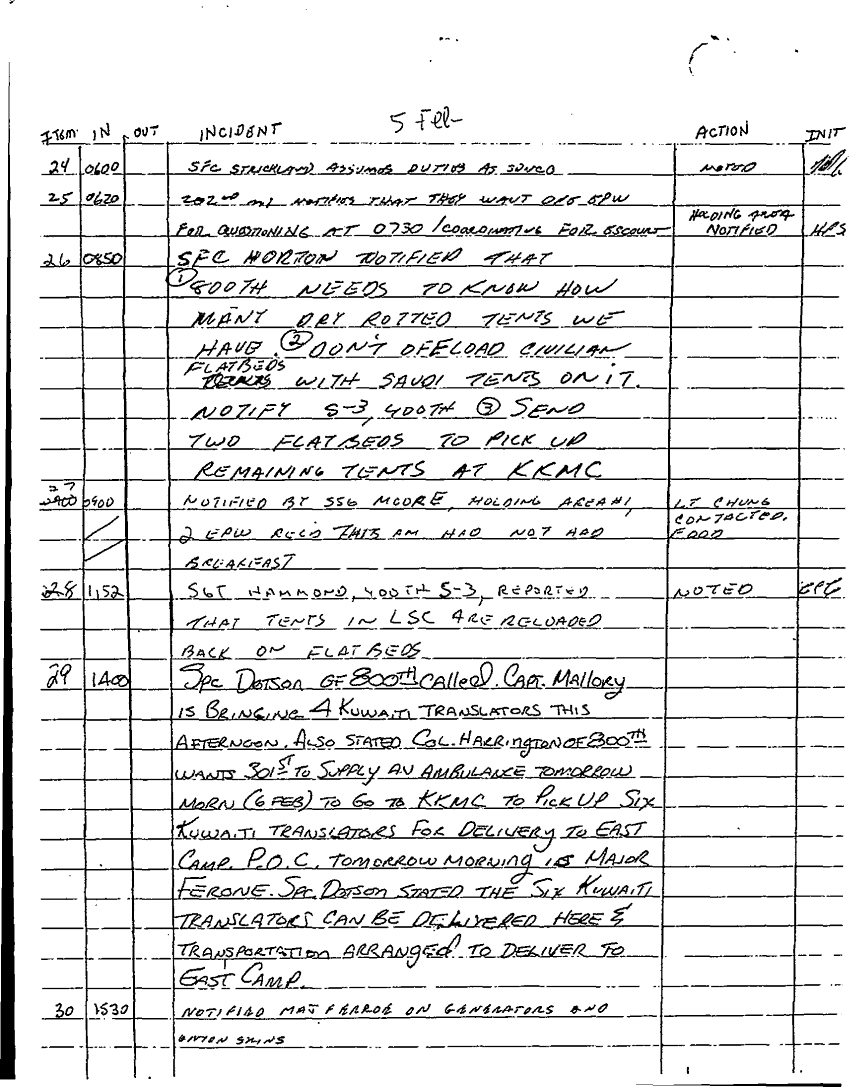 5 Feb
ITEM IN OUT INCIDENT ACTION INIT
24 0600 SFC STRICKLAND ASSUMES DUTIES AS SDNCO NOTED
25 0620 202nd MI NOTIFIES THAT THEY WANT ONE EPW
FOR QUESTIONING AT 0730 / COORDINATING FOR ESCOURT HOLDING AREA NOTIFIED HPS
26 0850 SFC HORTON NOTIFIED THAT
① 800TH NEEDS TO KNOW HOW
MANY DRY ROTTED TENTS WE
HAVE. ② DON'T OFFLOAD CIVILIAN
FLATBEDS WITH SAUDI TENTS ON IT.
NOTIFY S-3, 400TH ③ SEND
TWO FLATBEDS TO PICK UP
REMAINING TENTS AT KKMC
27 0900 NOTIFIED BY SSG MOORE, HOLDING AREA #1, LT CHUNG
2 EPW REC'D THIS AM HAD NOT HAD CONTACTED, FOOD
BREAKFAST
28 1152 SGT HAMMOND, 400TH S-3, REPORTED NOTED
THAT TENTS IN LSC ARE RELOADED
BACK ON FLATBEDS
29 1400 SPC DOTSON OF 800TH CALLED. CAPT. MALLORY
IS BRINGING 4 KUWAITI TRANSLATORS THIS
AFTERNOON. ALSO STATED COL. HARRINGTON OF 800TH
WANTS 301ST TO SUPPLY AN AMBULANCE TOMORROW
MORN (6 FEB) TO GO TO KKMC TO PICK UP SIX
KUWAITI TRANSLATORS FOR DELIVERY TO EAST
CAMP. P.O.C. TOMORROW MORNING IS MAJOR
FERONE. SPC. DOTSON STATED THE SIX KUWAITI
TRANSLATORS CAN BE DELIVERED HERE &
TRANSPORTATION ARRANGED TO DELIVER TO
EAST CAMP.
30 1530 NOTIFIED MAJ FERROE ON GENERATORS AND
SKINS